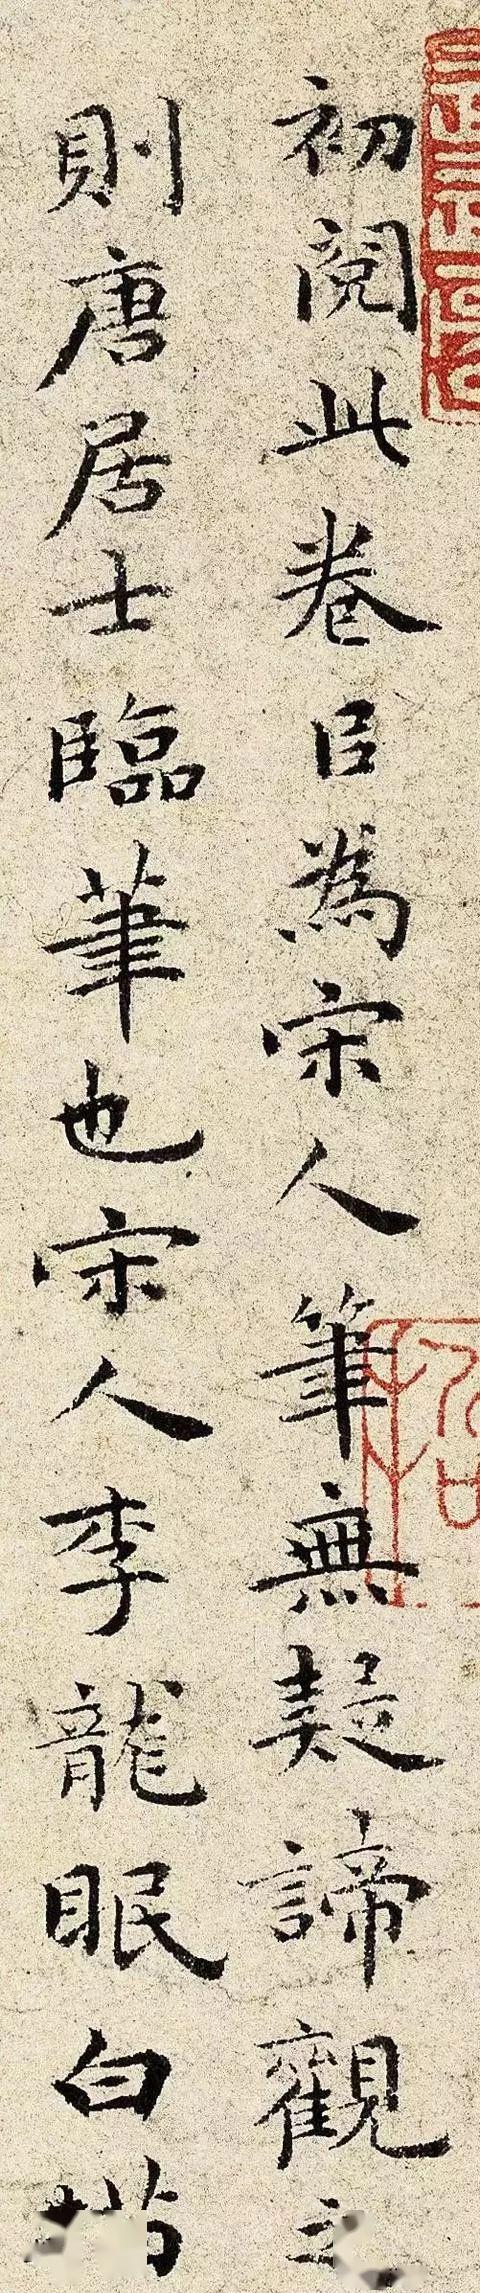 初閱此卷㠯為宋人筆無疑諦觀之
則唐居士臨筆也宋人李龍眠白描